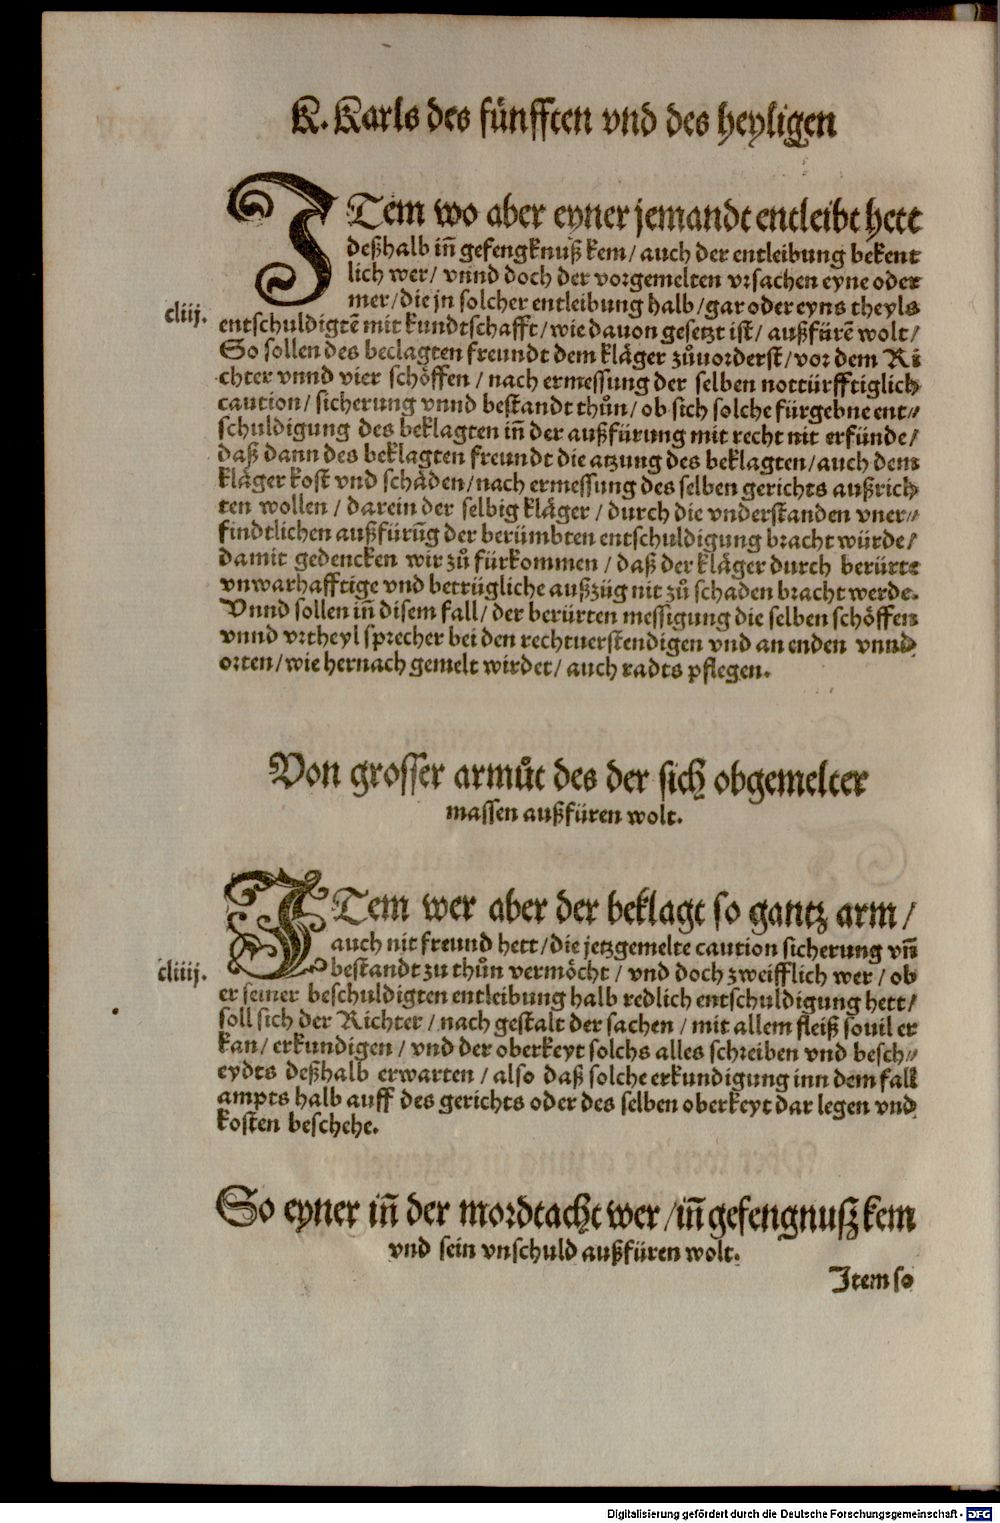 K. Karls des fünfften vnd des heyligen
ITem wo aber eyner jemandt entleibt hett
deßhalb iñ gefengknuß kem / auch der entleibung bekent
lich wer / vnnd doch der vorgemelten vrsachen eyne oder
mer / die jn solcher entleibung halb / gar oder eyns theyls
cliij.
entschuldigtē mit kundtschafft / wie dauon gesetzt ist / außfürē wolt /
So sollen des beclagten freundt dem kläger zůuorderst / vor dem Ri
chter vnnd vier schöffen / nach ermessung der selben nottürfftiglich
caution / sicherung vnnd bestandt thůn / ob sich solche fürgebne ent⸗
schuldigung des beklagten iñ der außfürung mit recht nit erfünde /
daß dann des beklagten freundt die atzung des beklagten / auch dem
kläger kost vnd schäden / nach ermessung des selben gerichts außrich
ten wollen / darein der selbig kläger / durch die vnderstanden vner⸗
findtlichen außfürūg der berümbten entschuldigung bracht würde /
damit gedencken wir zů fürkommen / daß der kläger durch berürte
vnwarhafftige vnd betrügliche außzüg nit zů schaden bracht werde.
Vnnd sollen iñ disem fall / der berürten messigung die selben schöffen
vnnd vrtheyl sprecher bei den rechtuerstendigen vnd an enden vnnd
orten / wie hernach gemelt wirdet / auch radts pflegen.
Von grosser armůt des der sich obgemelter
massen außfüren wolt.
ITem wer aber der beklagt so gantz arm /
auch nit freund hett / die jetzgemelte caution sicherung vñ
cliiij.
bestandt zu thůn vermöcht / vnd doch zweifflich wer / ob
er seiner beschuldigten entleibung halb redlich entschuldigung hett /
soll sich der Richter / nach gestalt der sachen / mit allem fleiß souil er
kan / erkundigen / vnd der oberkeyt solchs alles schreiben vnd besch⸗
eydts deßhalb erwarten / also daß solche erkundigung inn dem fall
ampts halb auff des gerichts oder des selben oberkeyt dar legen vnd
kosten beschehe.
So eyner iñ der mordtacht wer / iñ gefengnuß kem
vnd sein vnschuld außfüren wolt.
Item so
Digitalisierung gefördert durch die Deutsche Forschungsgemeinschaft - DFG